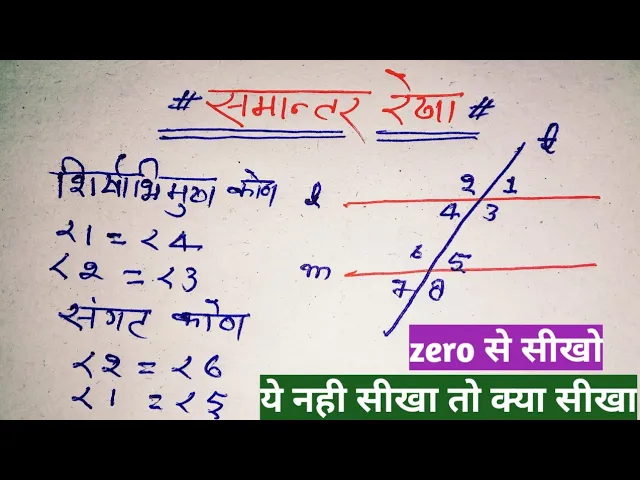 # समान्तर रेखा #
शिर्षाभिमुख कोण
∠1 = ∠4
∠2 = ∠3
संगट कोण
∠2 = ∠6
∠1 = ∠5
t
l
2 1
4 3
m
6 5
7 8
zero से सीखो
ये नही सीखा तो क्या सीखा